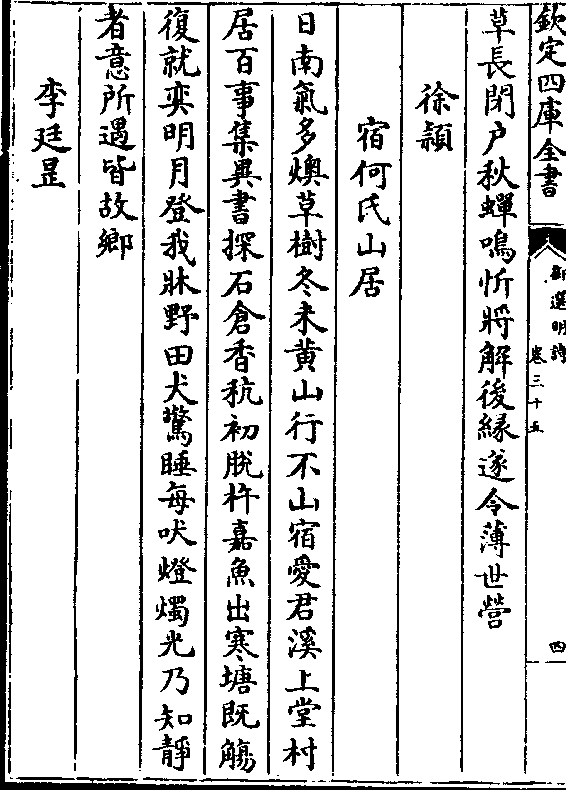 欽定四庫全書
御選明詩
卷三十五
四
草長閉户秋蟬鳴忻將解後緣遂令薄世營
徐頴
宿何氏山居
日南氣多燠草樹冬未黄山行不山宿愛君溪上堂村
居百事集異書探石倉香秔初脫杵嘉魚出寒塘既觴
復就奕明月登我牀野田犬驚睡每吠燈燭光乃知靜
者意所遇皆故鄉
李廷昰